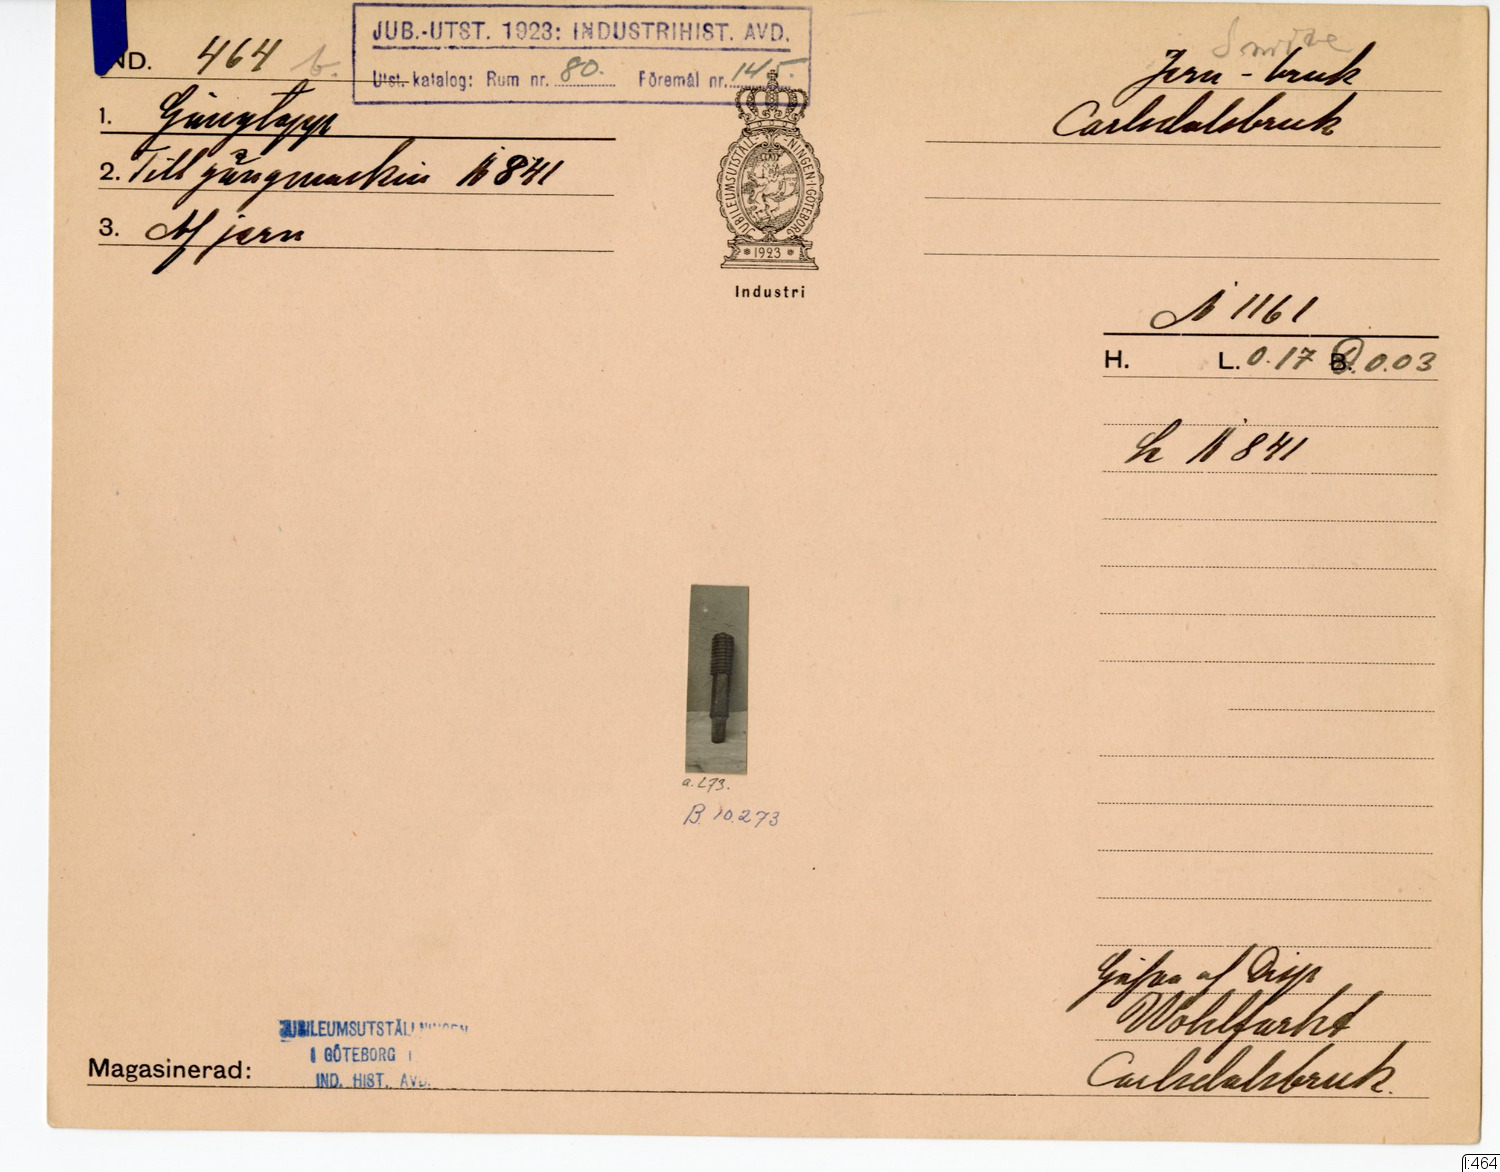 JUB.-UTST. 1923: INDUSTRIHIST. AVD.
Utst. katalog: Rum nr. 80. Föremål nr. 145.
IND. 464 b.
1. Gängtapp
2. Till gängmaskin N 841
3. Af jern
JUBILEUMSUTSTÄLLNINGEN I GÖTEBORG
* 1923 *
Industri
Smide
Jern-bruk
Carlsdalsbruk
N 1161
H. L. 0.17 B. D. 0.03
Se N 841
a.273.
B. 10.273
Gåfva af Disp
Wohlfarht
Carlsdalsbruk.
JUBILEUMSUTSTÄLLNINGEN
I GÖTEBORG
IND. HIST. AVD.
Magasinerad:
I:464